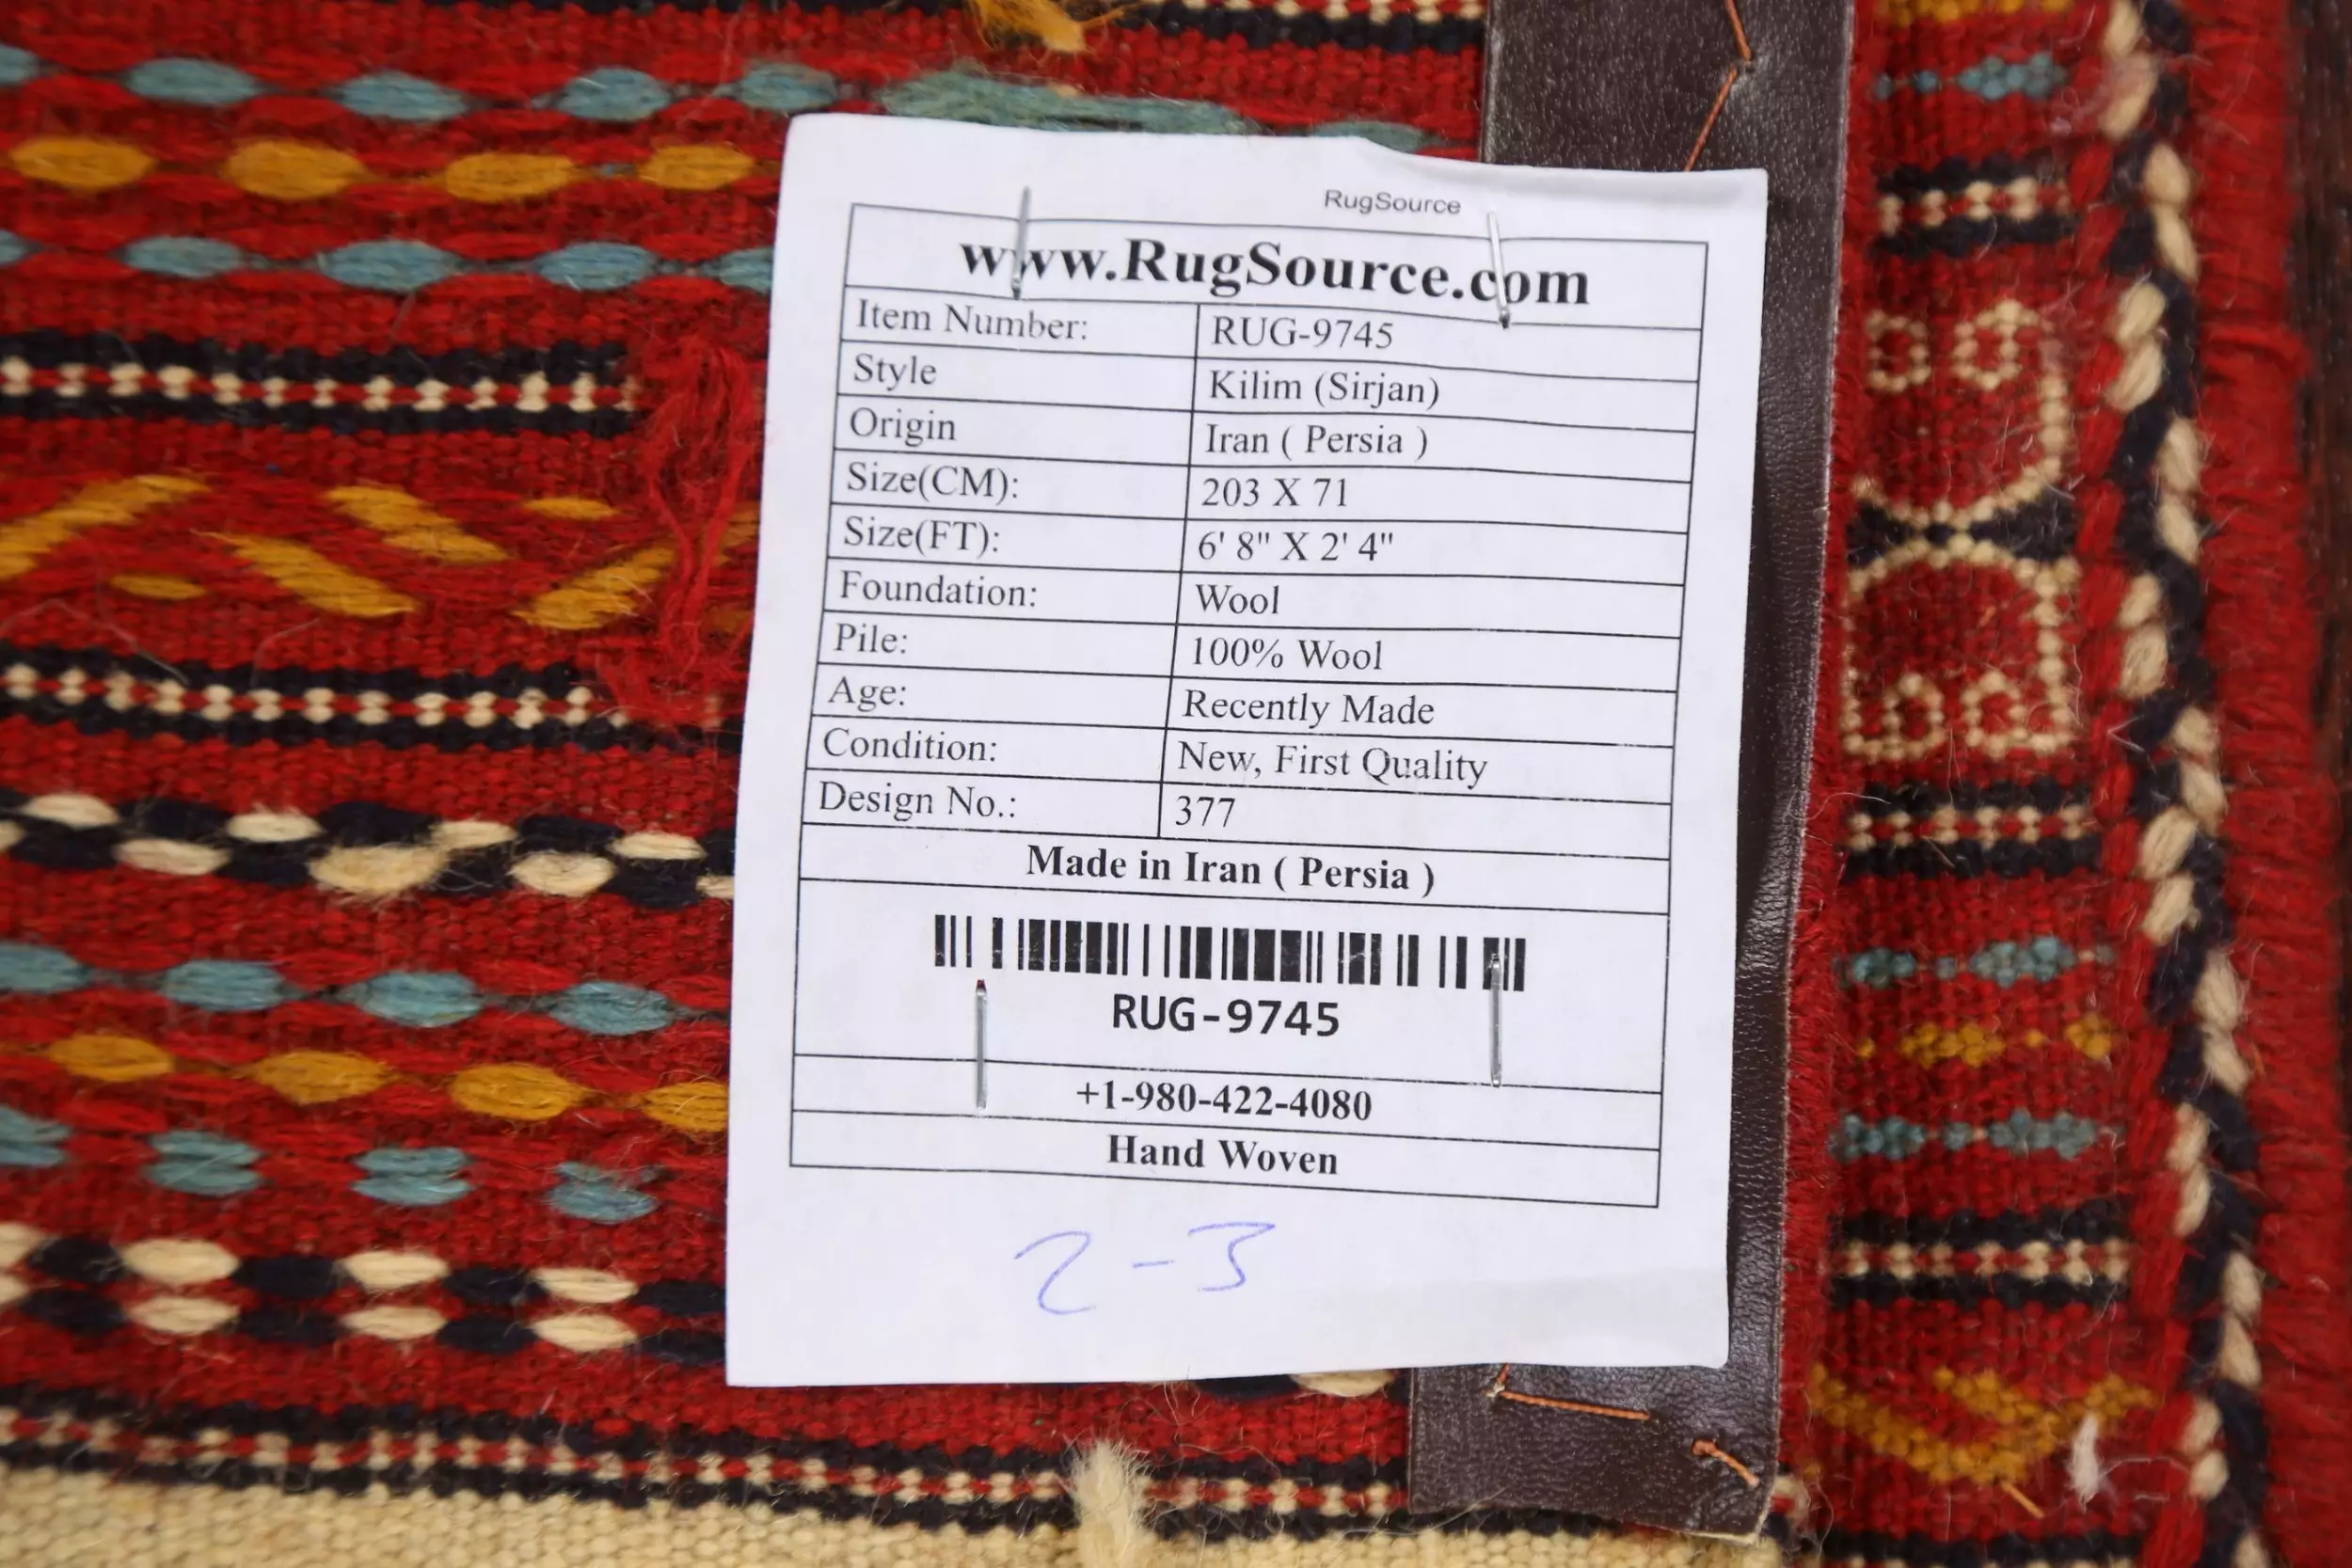 RugSource
www.RugSource.com
Item Number: RUG-9745
Style Kilim (Sirjan)
Origin Iran ( Persia )
Size(CM): 203 X 71
Size(FT): 6' 8" X 2' 4"
Foundation: Wool
Pile: 100% Wool
Age: Recently Made
Condition: New, First Quality
Design No.: 377
Made in Iran ( Persia )
RUG-9745
+1-980-422-4080
Hand Woven
2-3